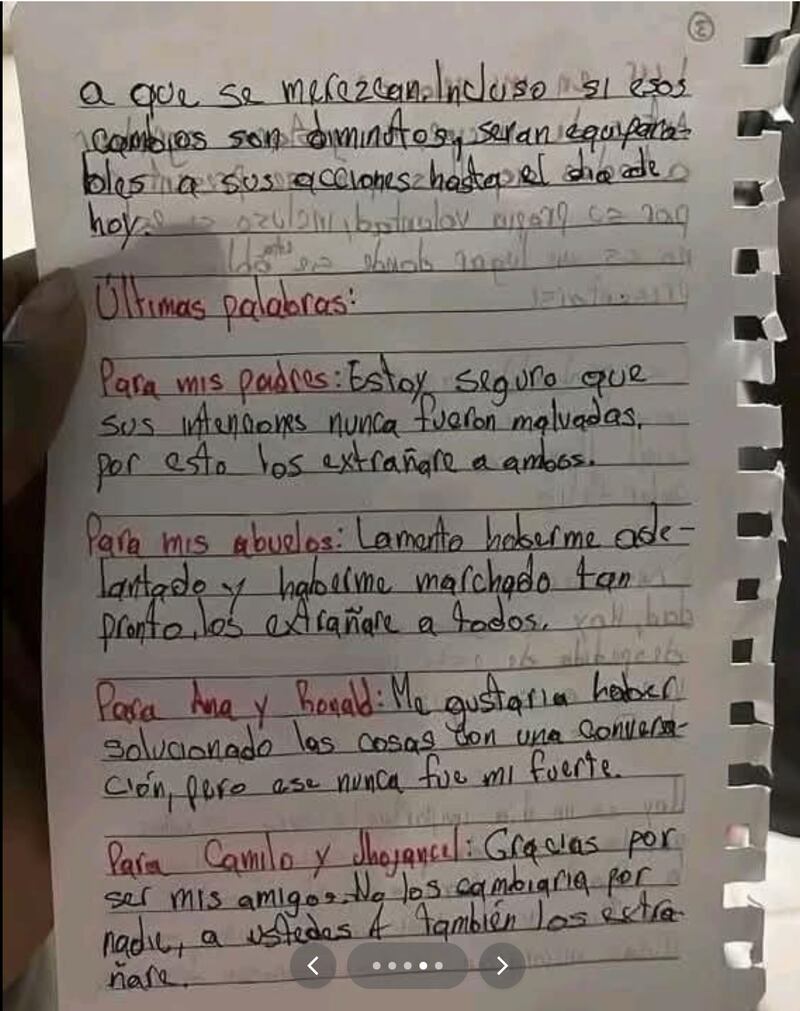 3
a que se merezcan. Incluso si esos
cambios son diminutos, seran equipara-
bles a sus acciones hasta el dia de
hoy.
Últimas palabras:
Para mis padres: Estoy seguro que
sus intenciones nunca fueron malvadas,
por esto los extrañare a ambos.
Para mis abuelos: Lamento haberme ade-
lantado y haberme marchado tan
pronto, los extrañare a todos.
Para Ana y Ronald: Me gustaria haber
solucionado las cosas con una conversa-
ción, pero ese nunca fue mi fuerte.
Para Camilo y Jhojancel: Gracias por
ser mis amigos. No los cambiaria por
nadie, a ustedes 4 también los extra-
ñare.